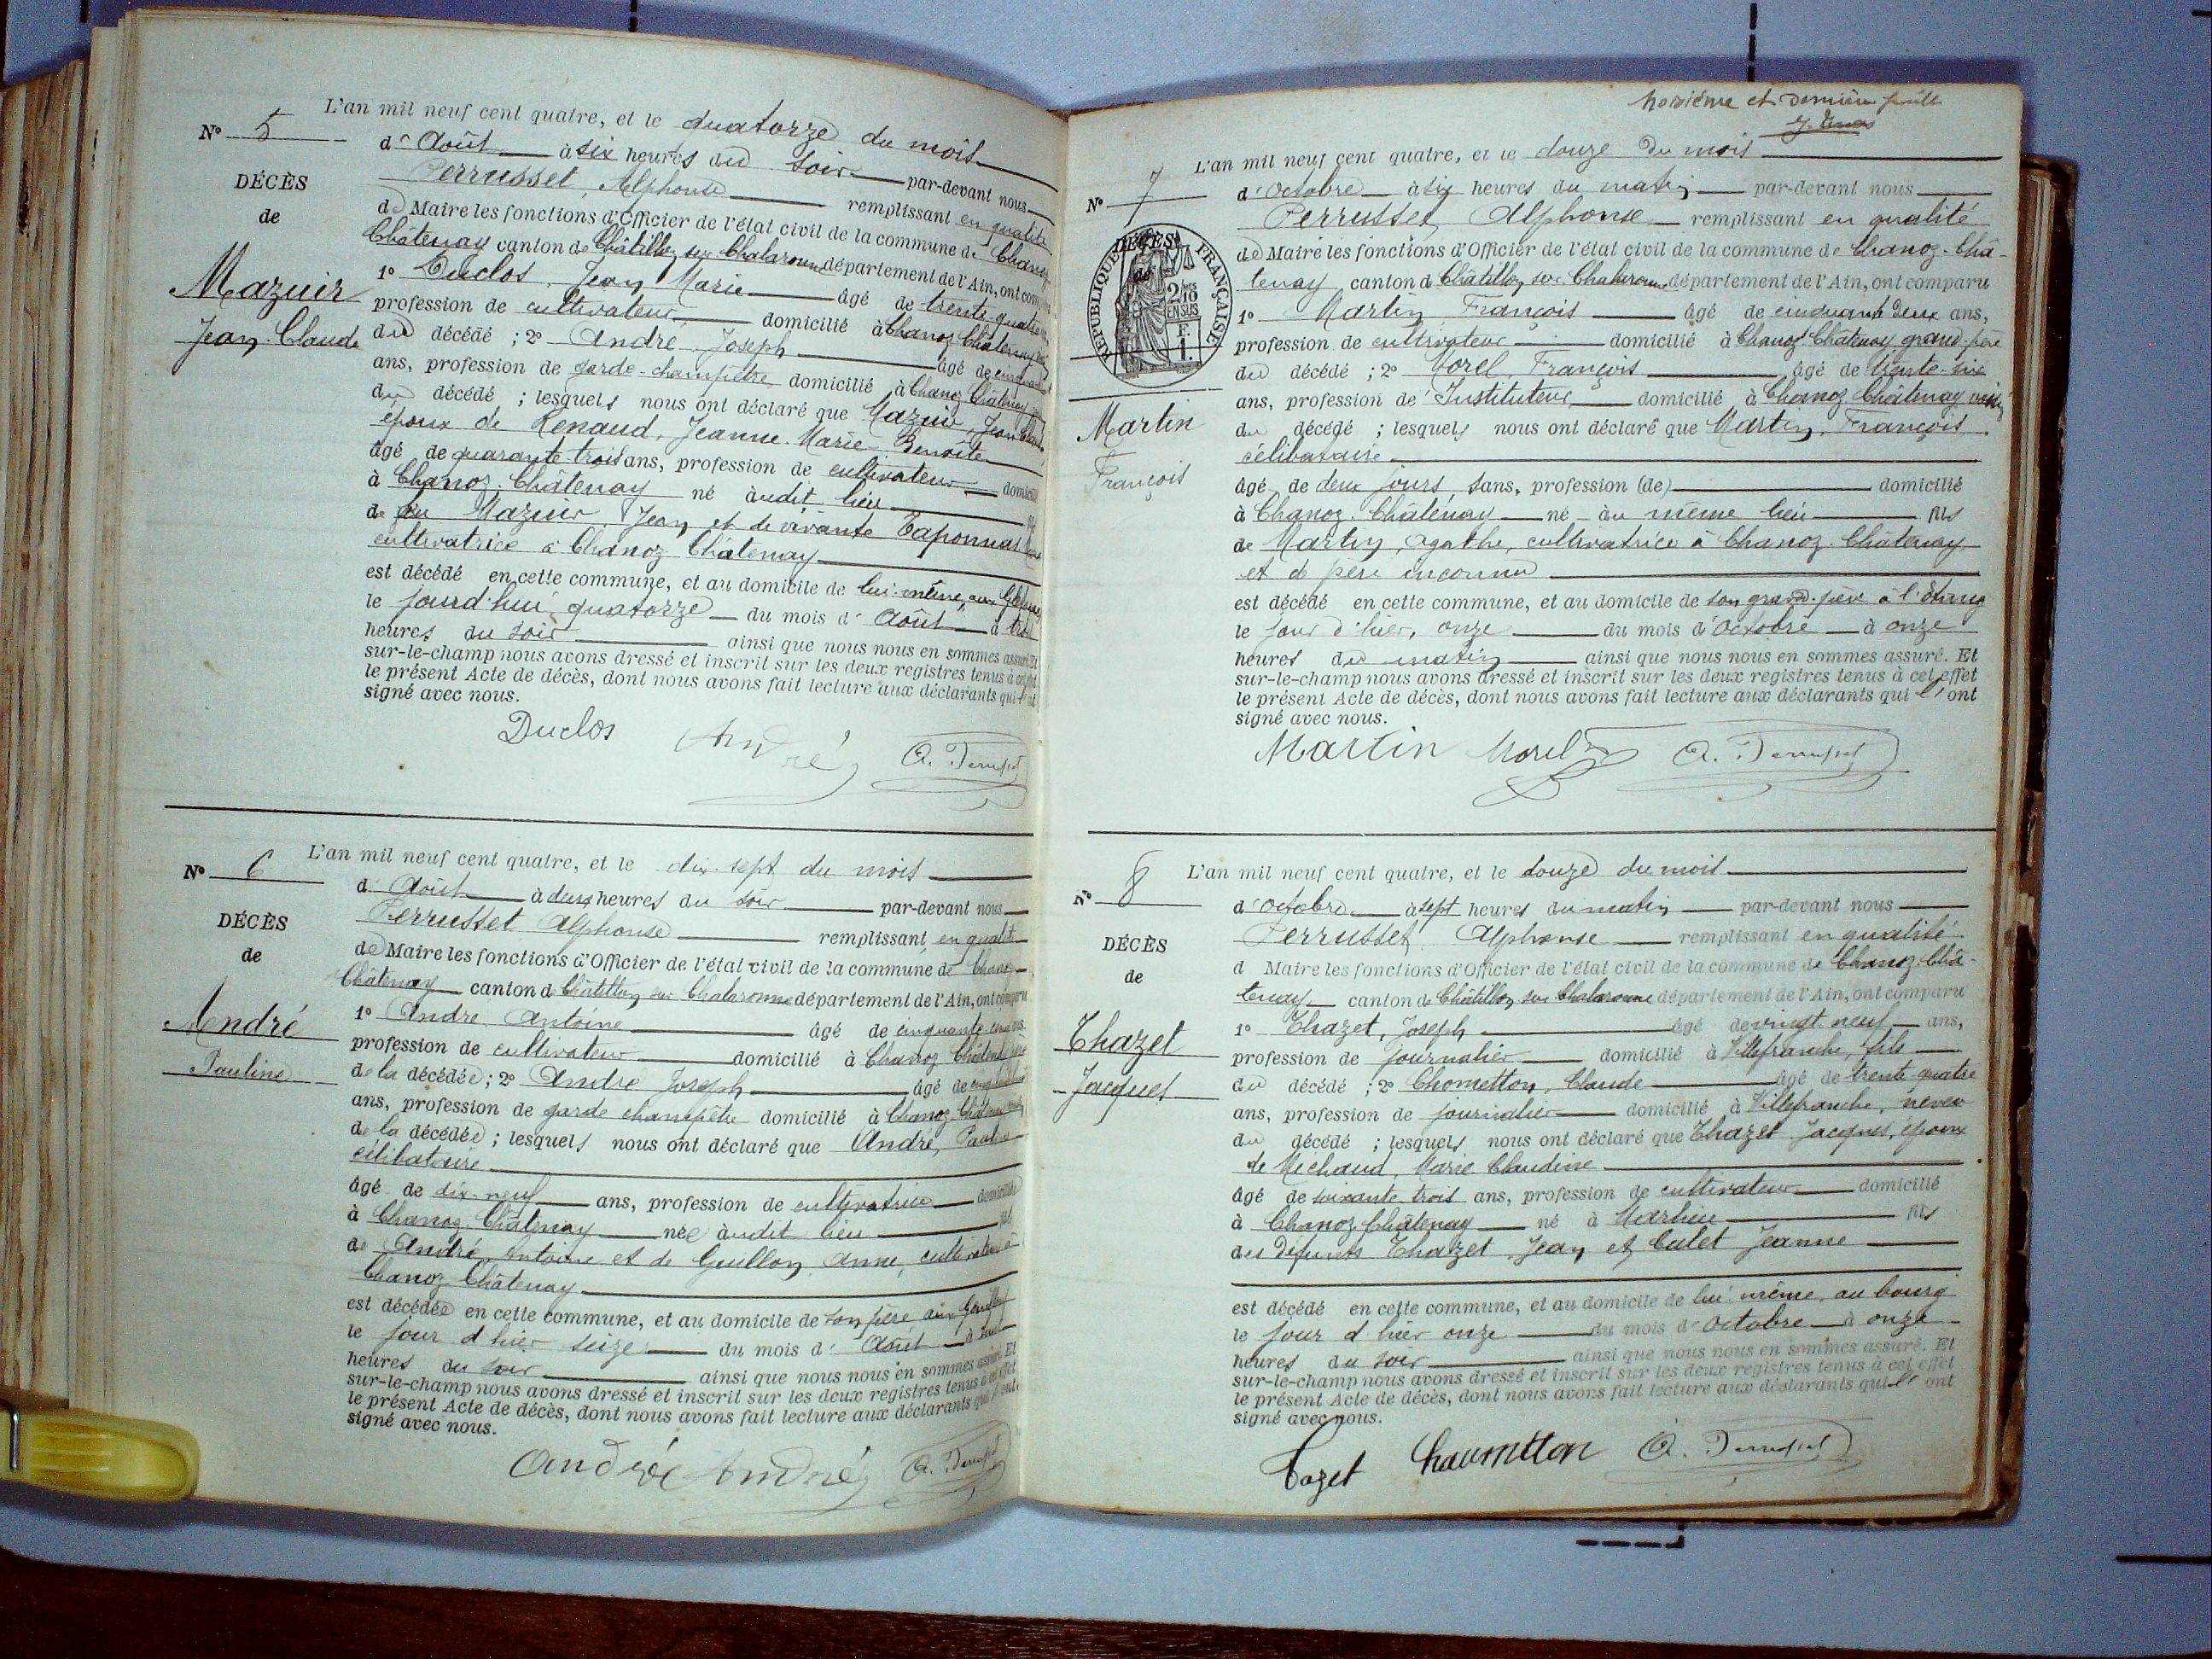 N° 5
DÉCÈS
de
Mazuir
Jean Claude
L'an mil neuf cent quatre, et le quatorze du mois
d'Août à six heures du soir par-devant nous
Perrusset, Alphonse remplissant en qualité
de Maire les fonctions d'Officier de l'état civil de la commune de Chanoz
Châtenay canton de Châtillon sur Chalaronne département de l'Ain, ont comparu
1° Duclos, Jean Marie âgé de trente quatre
profession de cultivateur domicilié à Chanoz Châtenay
du décédé ; 2° André Joseph âgé de
ans, profession de garde-champêtre domicilié à Chanoz Châtenay
du décédé ; lesquels nous ont déclaré que Mazuir, Jean Claude
époux de Renaud, Jeanne Marie Benoite
âgé de quarante trois ans, profession de cultivateur domicilié
à Chanoz-Châtenay né audit lieu fils
de feu Mazuir Jean et de vivante Taponnat
cultivatrice à Chanoz Châtenay
est décédé en cette commune, et au domicile de lui-même, aux
le jourd'hui quatorze du mois d'Août à trois
heures du soir ainsi que nous nous en sommes assuré. Et
sur-le-champ nous avons dressé et inscrit sur les deux registres tenus à cet effet
le présent Acte de décès, dont nous avons fait lecture aux déclarants qui l'ont
signé avec nous.
Duclos André A. Perrusset
N° 6
DÉCÈS
de
André
Pauline
L'an mil neuf cent quatre, et le dix-sept du mois
d'Août à deux heures du soir par-devant nous
Perrusset Alphonse remplissant en qualité
de Maire les fonctions d'Officier de l'état civil de la commune de Chanoz-
Châtenay canton de Châtillon sur Chalaronne département de l'Ain, ont comparu
1° André Antoine âgé de cinquante cinq ans
profession de cultivateur domicilié à Chanoz Châtenay père
de la décédée ; 2° André Joseph âgé de
ans, profession de garde champêtre domicilié à Chanoz Châtenay
de la décédée ; lesquels nous ont déclaré que André, Pauline
célibataire
âgé de dix-neuf ans, profession de cultivatrice domiciliée
à Chanoz-Châtenay née audit lieu fille
de André, Antoine et de Guillon Anne, cultivateurs à
Chanoz Châtenay
est décédée en cette commune, et au domicile de son père aux
le jour d'hier seize du mois d'Août à
heures du soir ainsi que nous nous en sommes assuré. Et
sur-le-champ nous avons dressé et inscrit sur les deux registres tenus à cet effet
le présent Acte de décès, dont nous avons fait lecture aux déclarants qui l'ont
signé avec nous.
André André A. Perrusset
troisième et dernière feuille
N° 7
DÉCÈS
de
RÉPUBLIQUE FRANÇAISE
2/10 EN SUS
F. 1.
Martin
François
L'an mil neuf cent quatre, et le douze du mois
d'Octobre à six heures du matin par-devant nous
Perrusset, Alphonse remplissant en qualité
de Maire les fonctions d'Officier de l'état civil de la commune de Chanoz-Châ-
tenay canton de Châtillon sur Chalaronne département de l'Ain, ont comparu
1° Martin François âgé de cinquante deux ans,
profession de cultivateur domicilié à Chanoz Châtenay grand-père
du décédé ; 2° Morel, François âgé de trente-six
ans, profession de Instituteur domicilié à Chanoz Châtenay voisin
du décédé ; lesquels nous ont déclaré que Martin, François
célibataire
âgé de deux jours, sans, profession (de) domicilié
à Chanoz-Châtenay né au même lieu fils
de Martin, Agathe, cultivatrice à Chanoz-Châtenay
et de père inconnu
est décédé en cette commune, et au domicile de son grand-père à l'étang
le jour d'hier, onze du mois d'Octobre à onze
heures du matin ainsi que nous nous en sommes assuré. Et
sur-le-champ nous avons dressé et inscrit sur les deux registres tenus à cet effet
le présent Acte de décès, dont nous avons fait lecture aux déclarants qui l'ont
signé avec nous.
Martin Morel A. Perrusset
N° 8
DÉCÈS
de
Thazet
Jacques
L'an mil neuf cent quatre, et le douze du mois
d'octobre à sept heures du matin par-devant nous
Perrusset Alphonse remplissant en qualité
d Maire les fonctions d'Officier de l'état civil de la commune de Chanoz-Châ-
tenay canton de Châtillon sur Chalaronne département de l'Ain, ont comparu
1° Thazet, Joseph âgé de vingt neuf ans,
profession de journalier domicilié à Villefranche, fils
du décédé ; 2° Chometton, Claude âgé de trente-quatre
ans, profession de journalier domicilié à Villefranche, neveu
du décédé ; lesquels nous ont déclaré que Thazet Jacques, époux
de Michaud, Marie Claudine
âgé de soixante trois ans, profession de cultivateur domicilié
à Chanoz-Châtenay né à Marlieu fils
des défunts Thazet, Jean et Culet Jeanne
est décédé en cette commune, et au domicile de lui-même, au bourg
le jour d'hier onze du mois d'Octobre à onze
heures du soir ainsi que nous nous en sommes assuré. Et
sur-le-champ nous avons dressé et inscrit sur les deux registres tenus à cet effet
le présent Acte de décès, dont nous avons fait lecture aux déclarants qui l'ont
signé avec nous.
Tazet Chaumetton A. Perrusset